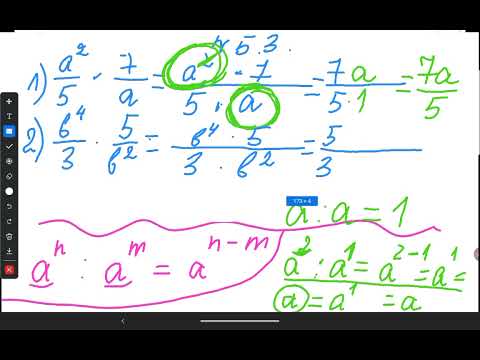 № 5.3.
1) a²/5 · 7/a = a² · 7 / 5 · a = 7a / 5 · 1 = 7a/5
2) b⁴/3 · 5/b² = b⁴ · 5 / 3 · b² = 5 / 3
a : a = 1
aⁿ : aᵐ = aⁿ⁻ᵐ
a² : a¹ = a²⁻¹ = a¹ =
a = a¹ = a